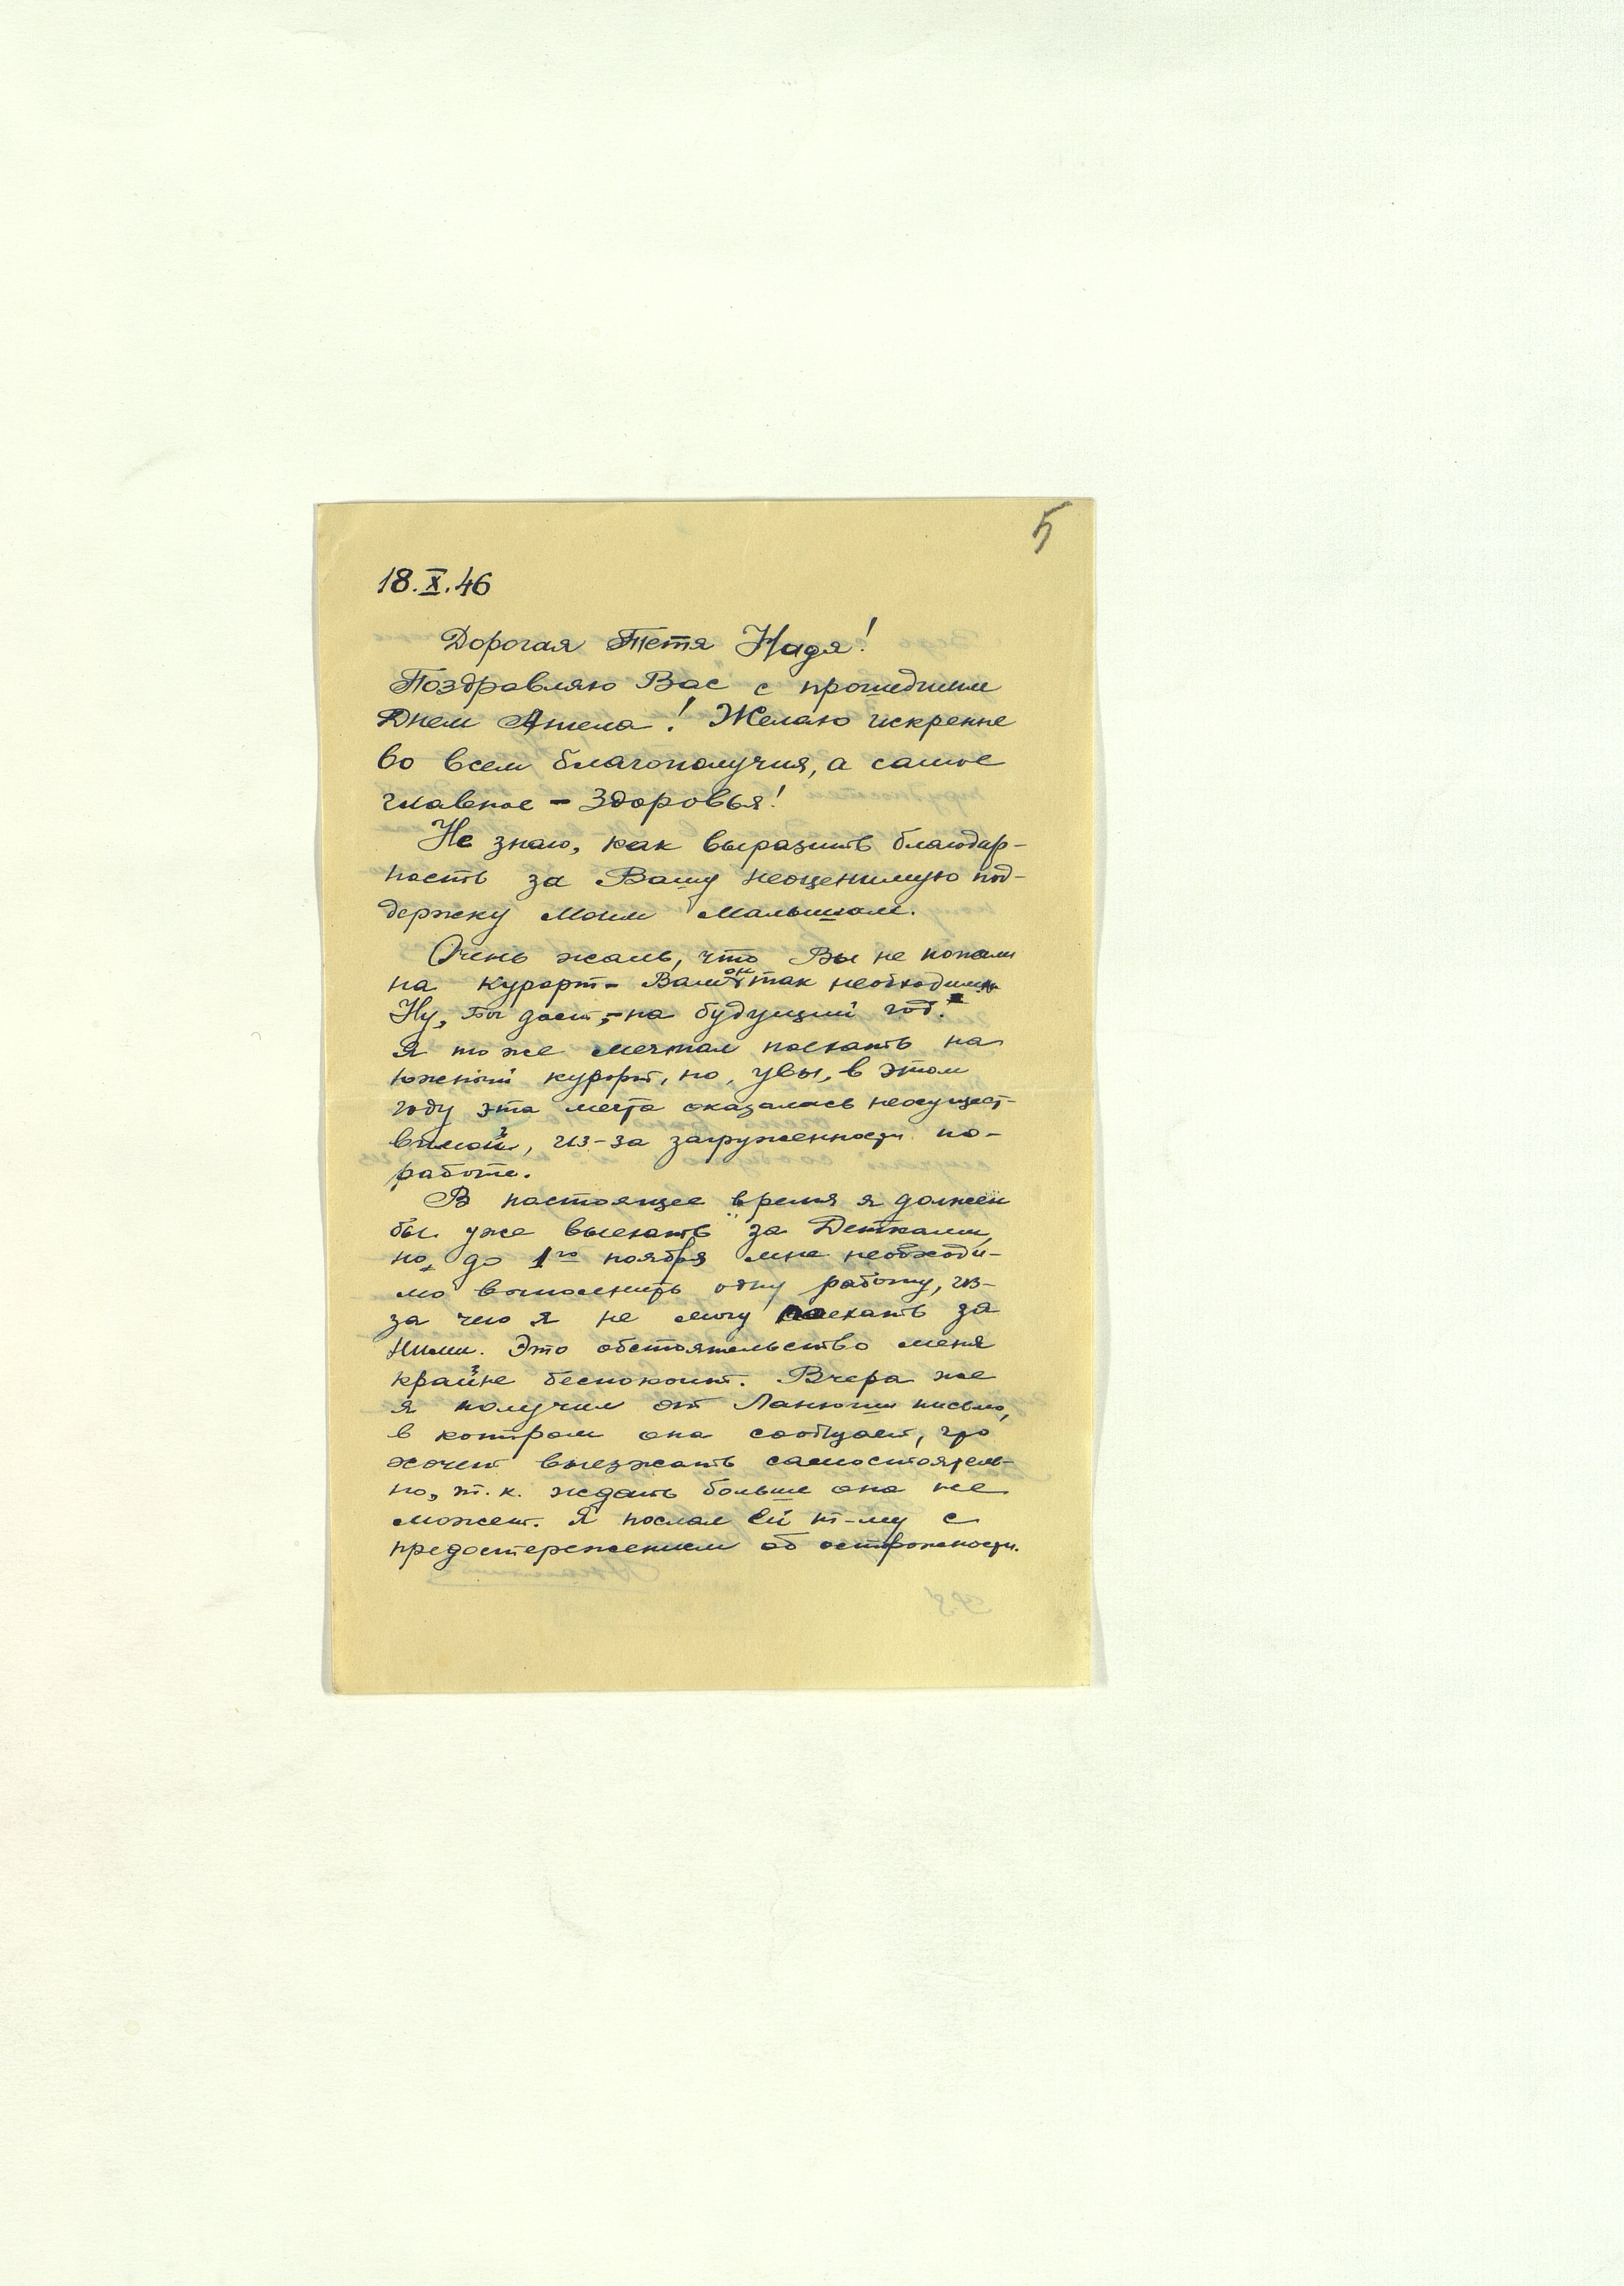 5
18.X.46
Дорогая Тетя Надя!
Поздравляю Вас с прошедшим
Днем Ангела! Желаю искренне
во всем благополучия, а самое
главное - здоровья!
Не знаю, как выразить благодар-
ность за Вашу неоценимую под-
держку моим малышам.
Очень жаль, что Вы не попали
на курорт - Вам он так необходим.
Ну, Бог даст, - на будущий год.
Я тоже мечтал поехать на
южный курорт, но, увы, в этом
году эта мечта оказалась неосущест-
вимой, из-за загруженности по-
работе.
В настоящее время я должен
был уже выехать за Детками,
но, до 1го ноября мне необходи-
мо выполнить одну работу, из-
за чего я не могу поехать за
ними. Это обстоятельство меня
крайне беспокоит. Вчера же
я получил от Ланюши письмо,
в котором она сообщает, что
хочет выезжать самостоятель-
но, т.к. ждать больше она не
может. Я послал ей т-му с
предостережением об осторожности.